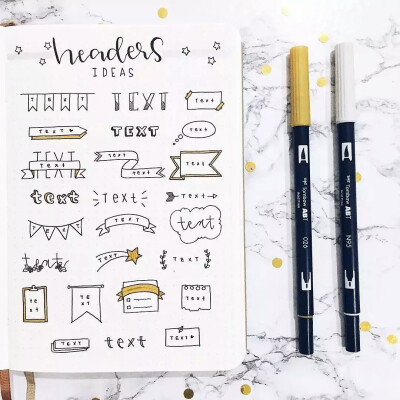 headers
IDEAS
TEXT TEXT text
TEXT TEXT TEXT
TEXT
TEXT text text TEXT
text text TEXT
TEXT TEXT text
text TEXT text
text TEXT text
TEXT text TEXT
Tombow ABT 026
Tombow ABT N95